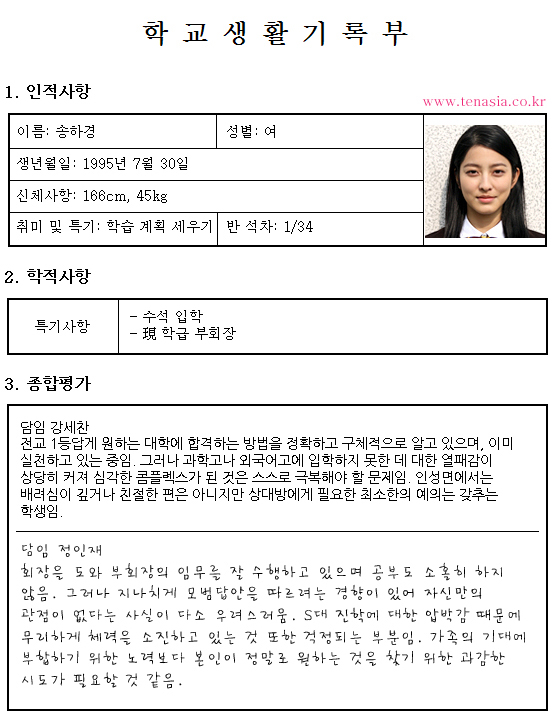 학교생활기록부
1. 인적사항
www.tenasia.co.kr
이름: 송하경 성별: 여
생년월일: 1995년 7월 30일
신체사항: 166cm, 45kg
취미 및 특기: 학습 계획 세우기 반 석차: 1/34
2. 학적사항
특기사항
- 수석 입학
- 現 학급 부회장
3. 종합평가
담임 강세찬
전교 1등답게 원하는 대학에 합격하는 방법을 정확하고 구체적으로 알고 있으며, 이미
실천하고 있는 중임. 그러나 과학고나 외국어고에 입학하지 못한 데 대한 열패감이
상당히 커져 심각한 콤플렉스가 된 것은 스스로 극복해야 할 문제임. 인성면에서는
배려심이 깊거나 친절한 편은 아니지만 상대방에게 필요한 최소한의 예의는 갖추는
학생임.
담임 정인재
회장을 도와 부회장의 임무를 잘 수행하고 있으며 공부도 소홀히 하지
않음. 그러나 지나치게 모범답안을 따르려는 경향이 있어 자신만의
관점이 없다는 사실이 다소 우려스러움. S대 진학에 대한 압박감 때문에
무리하게 체력을 소진하고 있는 것 또한 걱정되는 부분임. 가족의 기대에
부합하기 위한 노력보다 본인이 정말로 원하는 것을 찾기 위한 과감한
시도가 필요할 것 같음.